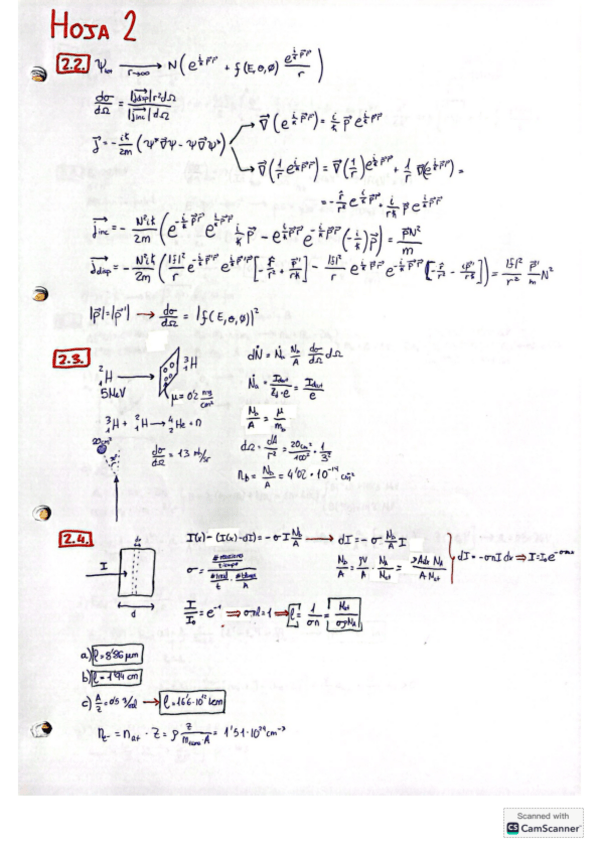 HOJA 2
2.2. Ψ⃗ₖₘ → (r→∞) N(e^{i/ħ p⃗r⃗} + f(E,θ,ø) e^{i/ħ p⃗r⃗}/r)
dσ/dΩ = |j⃗disp| r²dΩ / |j⃗inc| dΩ
∇⃗(e^{i/ħ p⃗r⃗}) = i/ħ p⃗ e^{i/ħ p⃗r⃗}
j⃗ = -iħ/2m (Ψ*∇⃗Ψ - Ψ∇⃗Ψ*)
∇⃗(1/r e^{i/ħ p⃗r⃗}) = ∇⃗(1/r) e^{i/ħ p⃗r⃗} + 1/r ∇⃗(e^{i/ħ p⃗r⃗}) =
= -r̂/r² e^{i/ħ p⃗r⃗} + i/rħ p⃗ e^{i/ħ p⃗r⃗}
j⃗inc = - N²iħ/2m (e^{-i/ħ p⃗r⃗} e^{i/ħ p⃗r⃗} i/ħ p⃗ - e^{i/ħ p⃗r⃗} e^{-i/ħ p⃗r⃗} (-i/ħ) p⃗) = p⃗N²/m
j⃗disp = - N²iħ/2m (|f|²/r e^{-i/ħ p⃗r⃗} e^{i/ħ p⃗r⃗} [-r̂/r² + ip⃗'/rħ] - |f|²/r e^{i/ħ p⃗r⃗} e^{-i/ħ p⃗r⃗} [-r̂/r² - ip⃗'/rħ]) = |f|²/r² p⃗'/m N²
|p⃗| = |p⃗'| → dσ/dΩ = |f(E,θ,ø)|²
2.3.
²₁H
5MeV
³₁H
μ = 0'2 mg/cm²
dṄ = Ṅₐ N_b/A dσ/dΩ dΩ
Ṅₐ = I_deut/Z₁·e = I_deut/e
³₁H + ²₁H → ⁴₂He + n
N_b/A = μ/m_b
20cm²
3°
dσ/dΩ = 13 mb/sr
dΩ = dA/r² = 20cm²/100² · 1/3²
n_b = N_b/A = 4'02 · 10⁻¹⁹ cm⁻²
2.4.
dx
I
d
I(x) - (I(x) - dI) = -σ I N_b/A → dI = -σ N_b/A I
σ = (# reacciones/tiempo) / (# incid/t · # blancos/A)
N_b/A = ρV/A · N_A/M_at = ρAdx N_A/A M_at
dI = -σ n I dx ⇒ I = I₀e^{-σnx}
I/I₀ = e⁻¹ ⇒ σnl = 1 → l = 1/σn = M_at/σρN_A
a) l = 8'86 μm
b) l = 1'94 cm
c) A/Z = 0'5 g/mol → l = 16'6·10¹² km
n_e⁻ = n_at · Z = ρ Z/m_nuc A = 1'51·10²⁴ cm⁻³
Scanned with
CS CamScanner